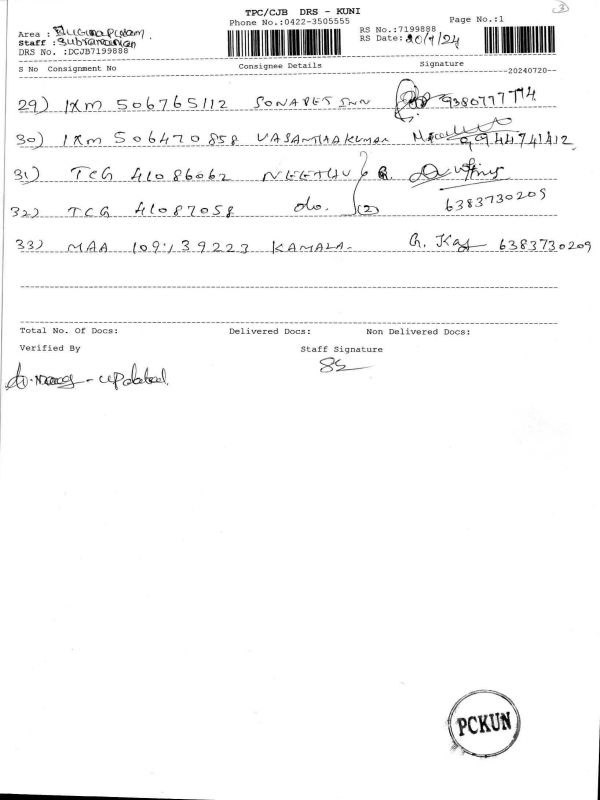 3
TPC/CJB DRS - KUNI
Phone No.:0422-3505555
Page No.:1
Area :
Staff : Subramanian
DRS No. :DCJB7199888
RS No.:7199888
RS Date: 20/7/24
S No Consignment No Consignee Details Signature
--20240720--
29) IXM 506765112 SONAPET INN 9380777774
30) IXM 506470858 VASANTHAKUMAR 9944741412
31) TCG 41086062 NEETHU
32) TCG 41087058 do. (2) 6383730209
33) MAA 109139223 KAMALA- 6383730209
Total No. Of Docs: Delivered Docs: Non Delivered Docs:
Verified By Staff Signature
- updated.
PCKUN